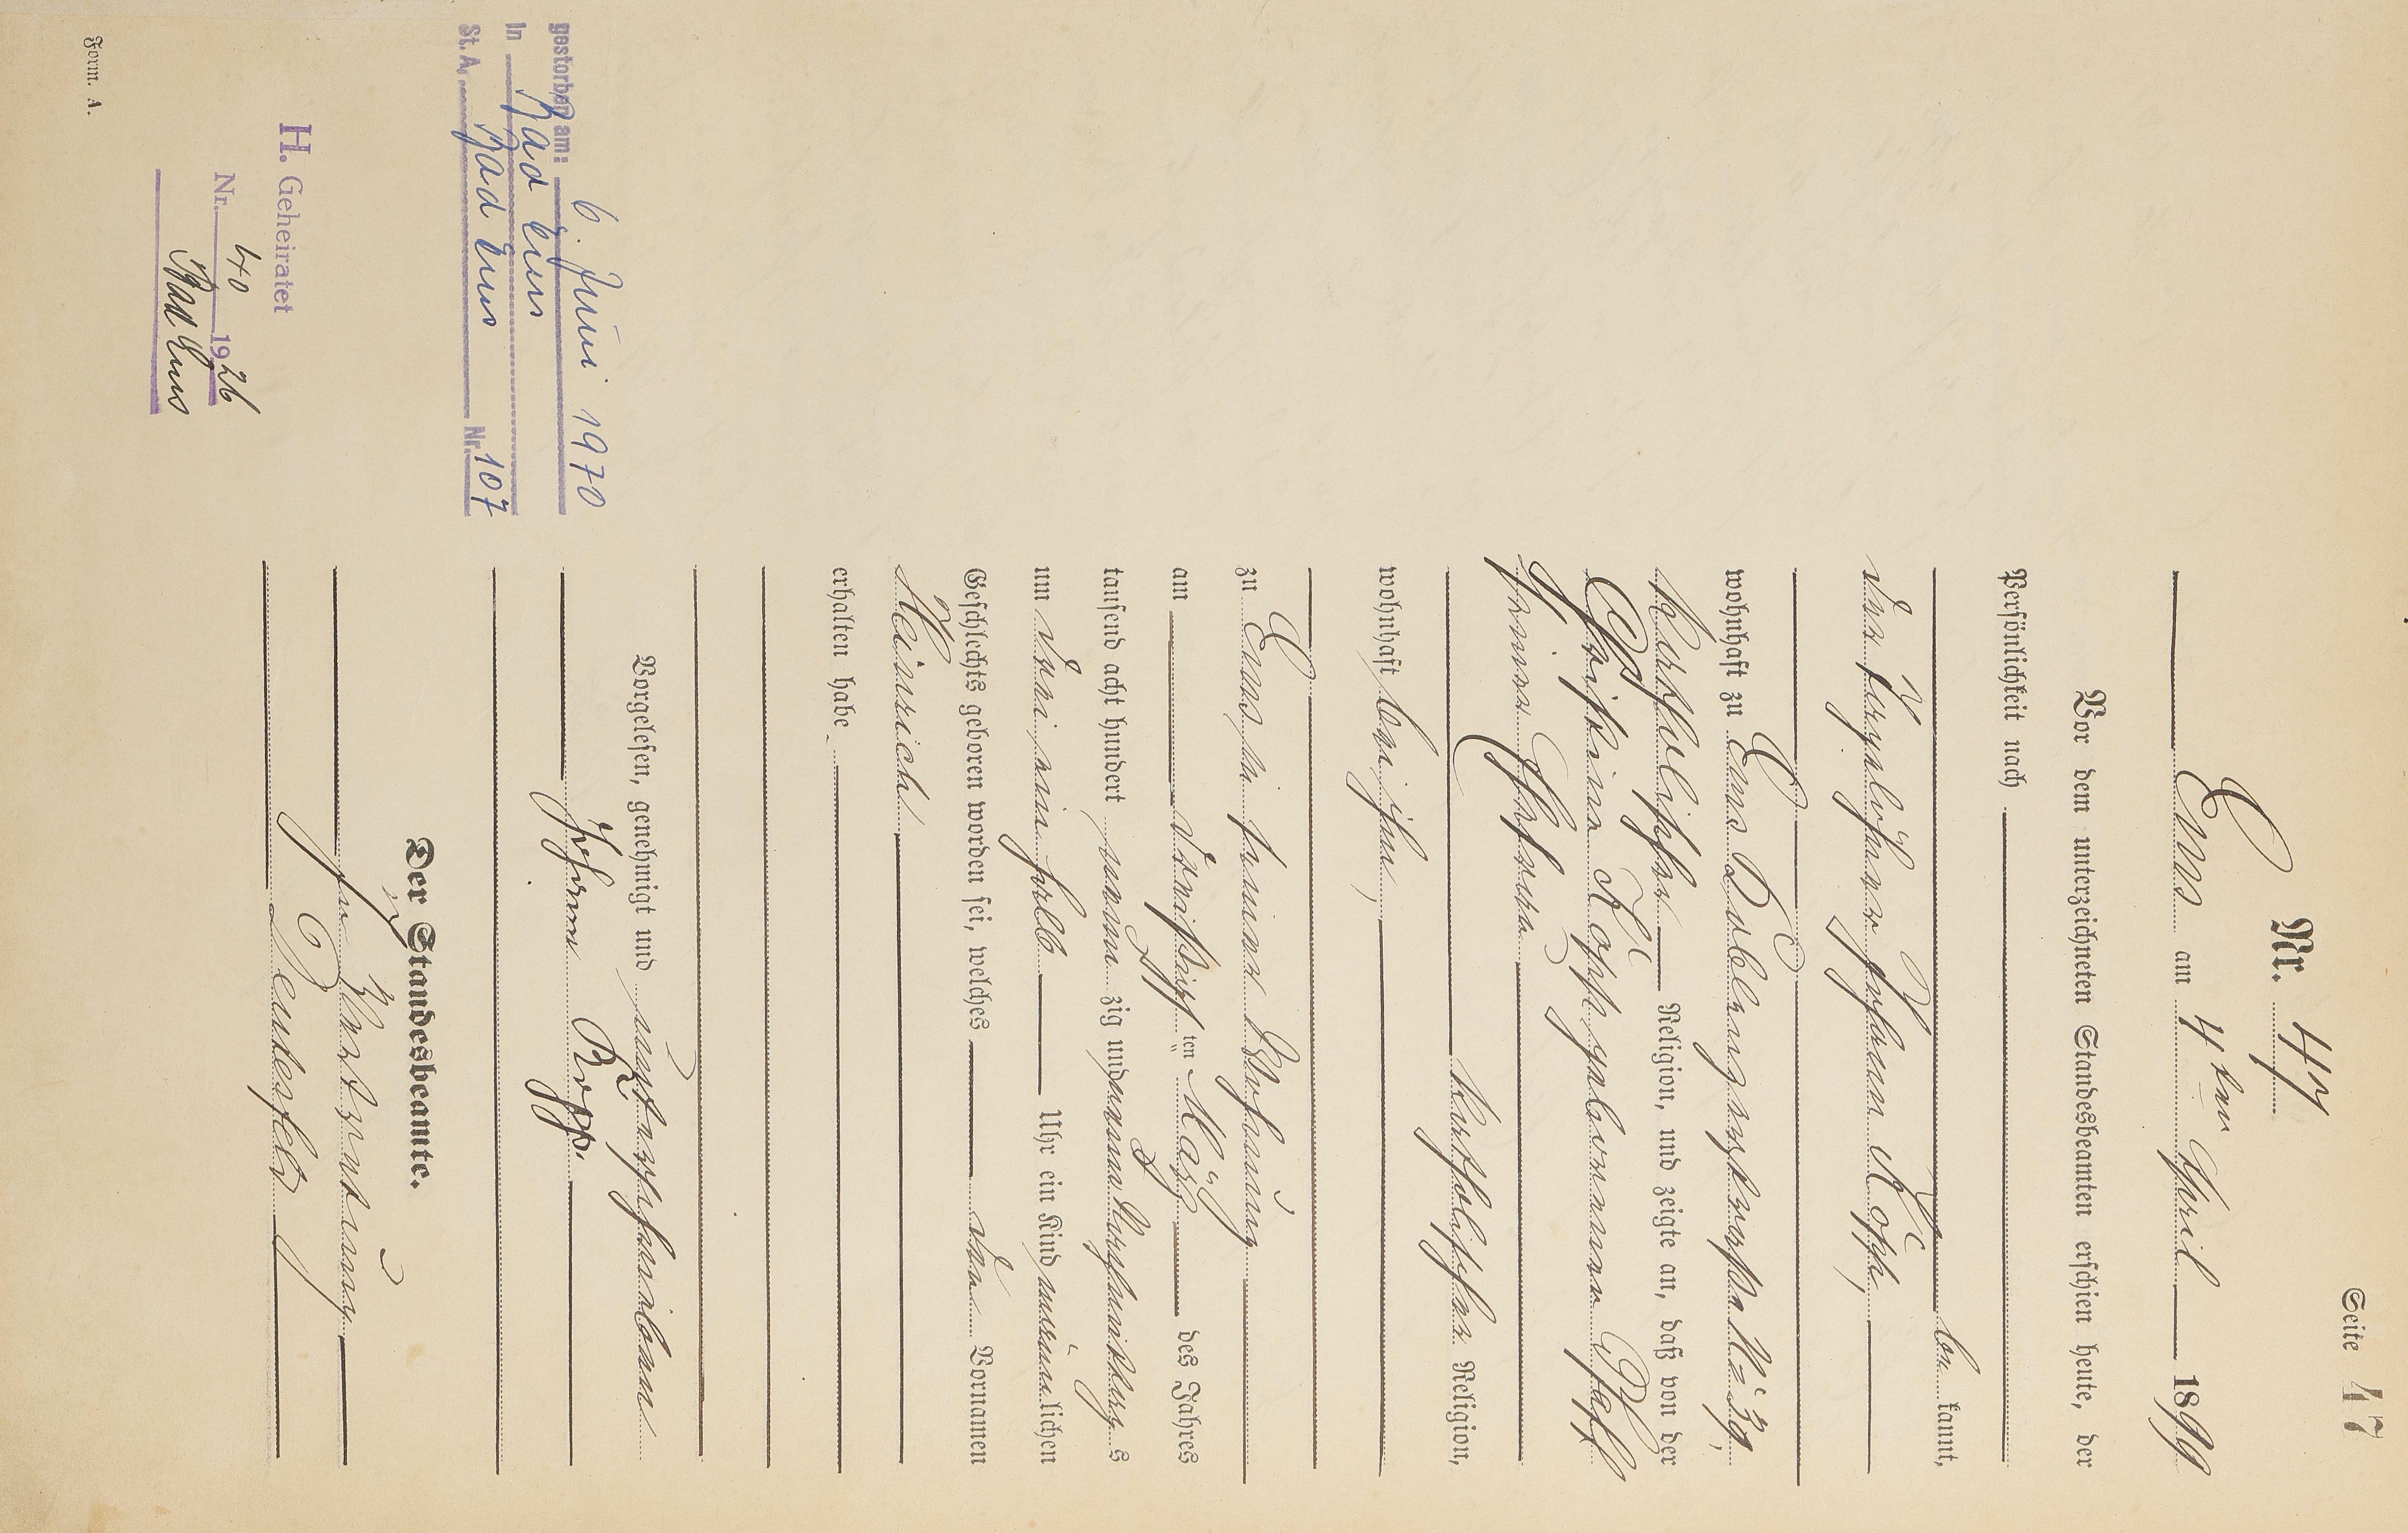 Seite 47
Nr. 47
Ems am 4ten April 1899
Vor dem unterzeichneten Standesbeamten erschien heute, der
Persönlichkeit nach
be kannt,
der Tagelöhner Johann Kopp,
wohnhaft zu Ems Coblenzerstraße No 39,
katholischer Religion, und zeigte an, daß von der
Christine Kopp geborenen Pfaff
seiner Ehefrau
katholischer Religion,
wohnhaft bei ihm,
zu Ems in seiner Wohnung
am dreißigsten März des Jahres
tausend acht hundert neun zig und neun Nachmittags
um drei ein halb Uhr ein Kind männlichen
Geschlechts geboren worden sei, welches den Vornamen
Heinrich
erhalten habe
Vorgelesen, genehmigt und unterschrieben
Johann Kopp.
Der Standesbeamte.
In Vertretung
gestorben am: 6. Juni 1970
in Bad Ems
St. A. Bad Ems Nr. 107
H. Geheiratet
Nr. 40 1926
Bad Ems
Form. A.